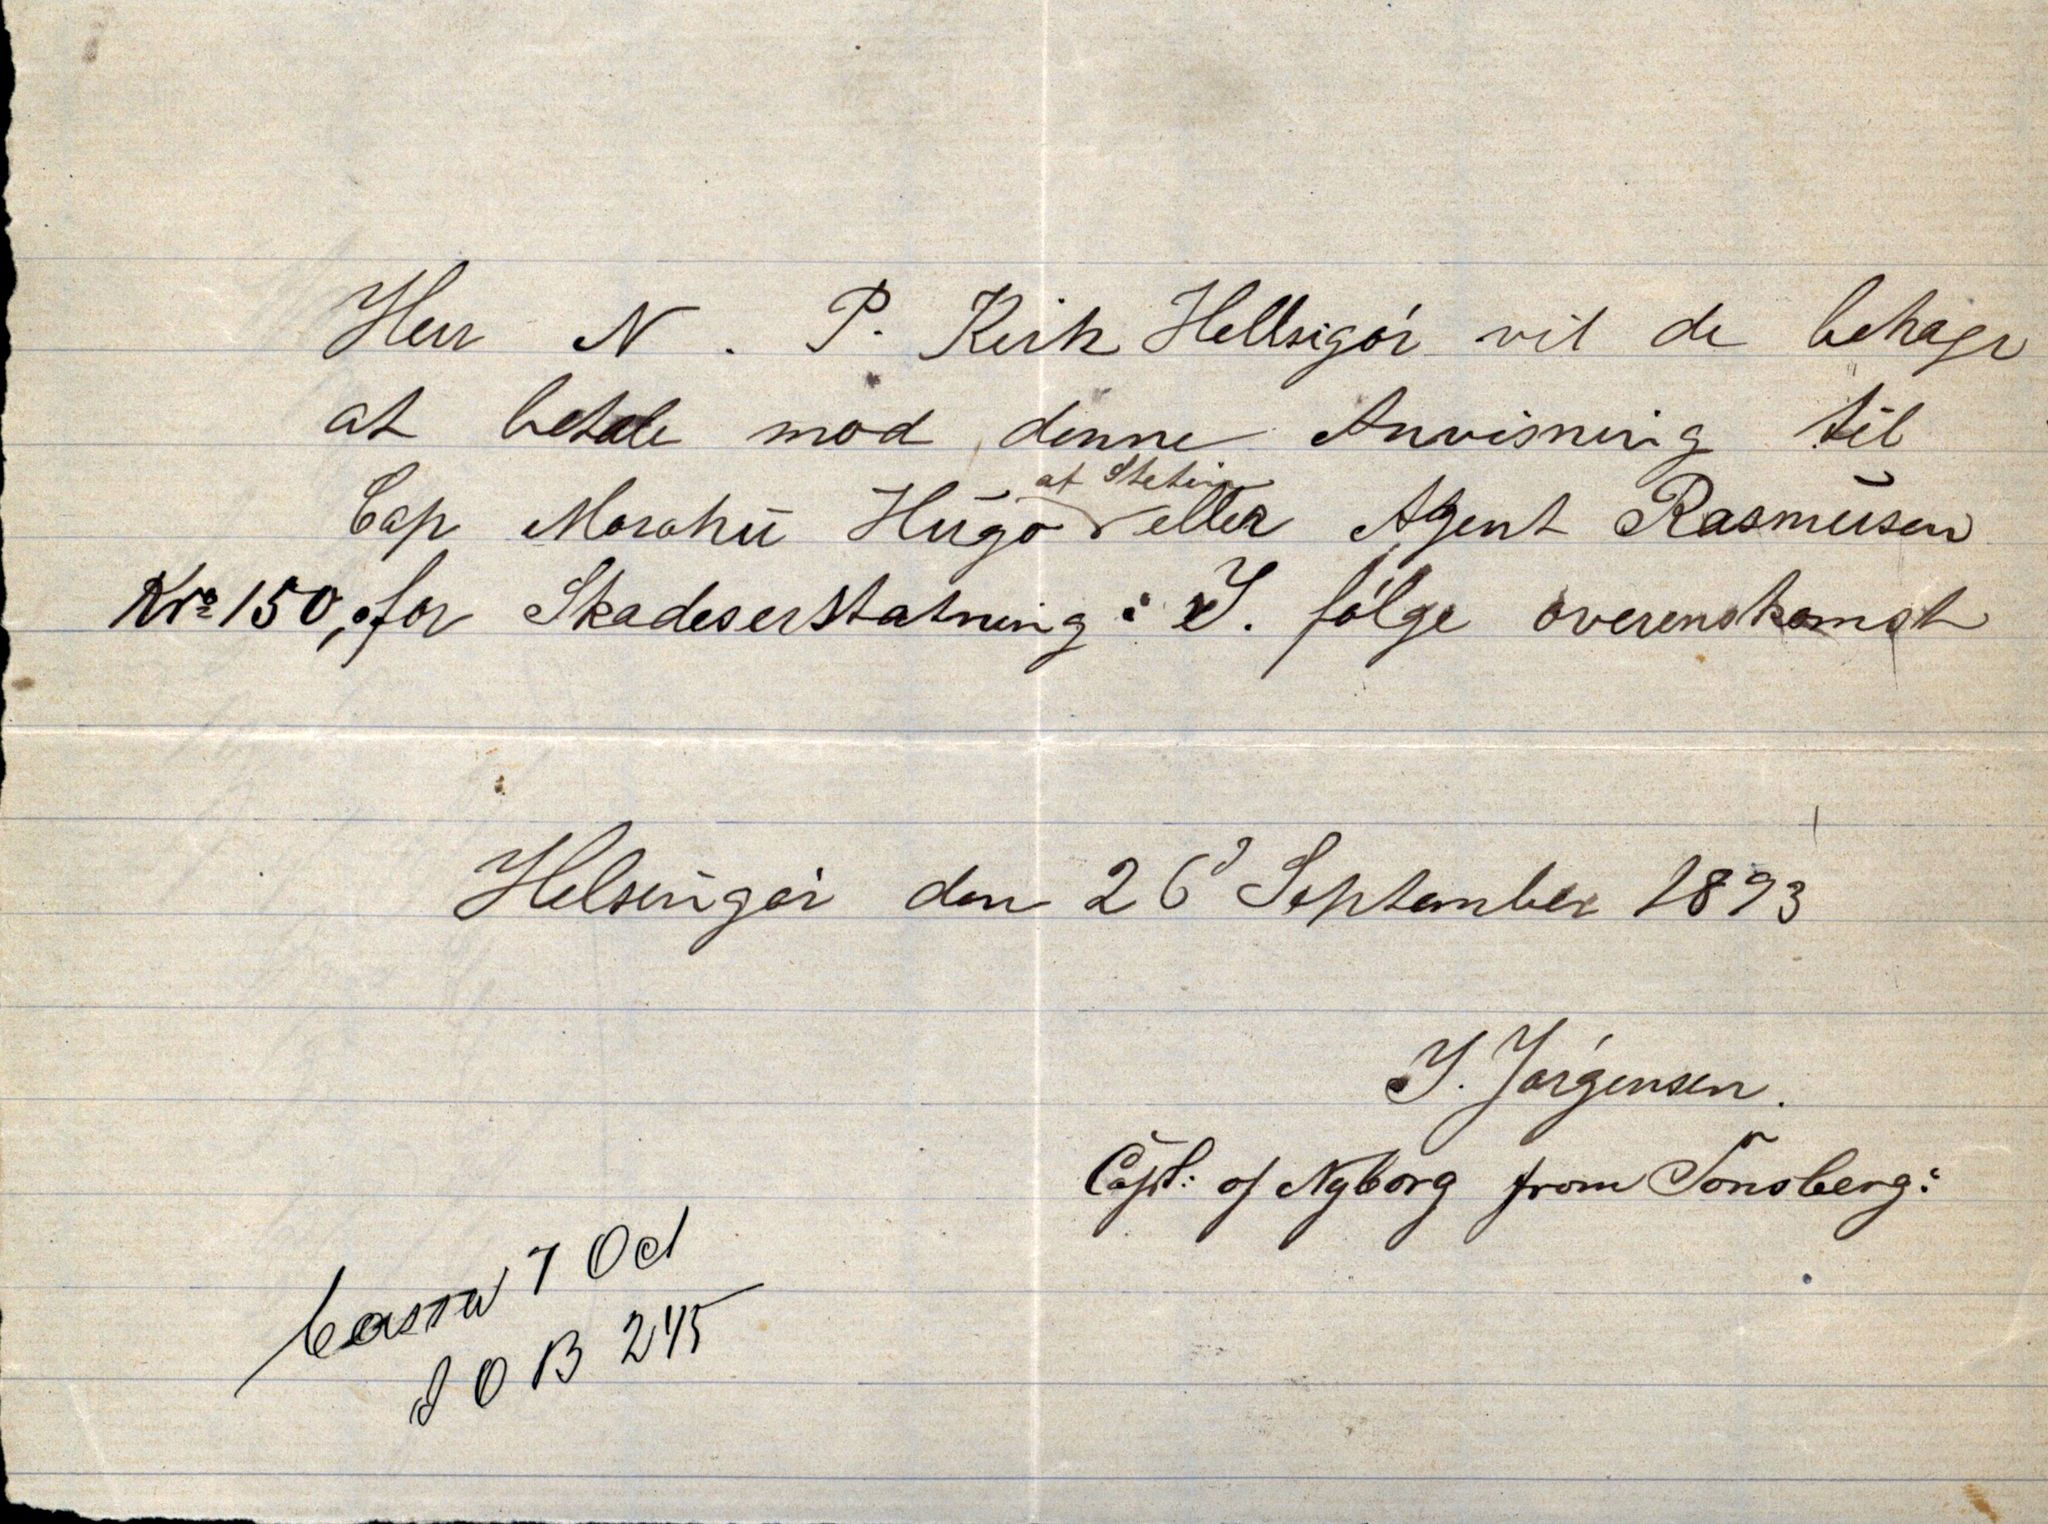 Herr N. P. Kirk Hellsigór vil de behage
at betale mod denne Anvisning til
af Stetin
Cap Marahú Húgo eller Agent Rasmúsen
Kr 150,- for Skadeserstatning: I. fólge overenskomst
Helsingór den 26d September 1893
J. Jórgensen.
Capt: of Nyborg from Tönsberg:
Cassa 7 Oct
J O B 245